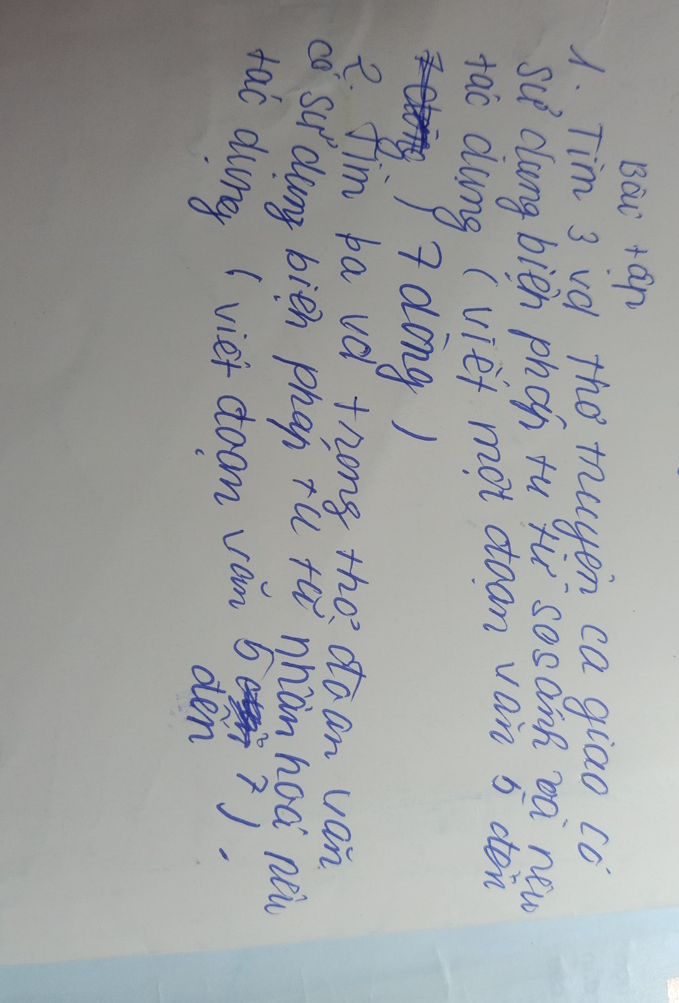 Bài tập
1. Tìm 3 vd thơ truyện ca giao có
sử dụng biện pháp tu từ so sánh và nêu
tác dụng ( viết một đoạn văn 5 đến
7 dòng )
2. Tìm ba vd trong thơ đoan văn
có sử dụng biện pháp tu từ nhân hoá nêu
tác dụng ( viết đoạn văn 5 đến 7 ) .